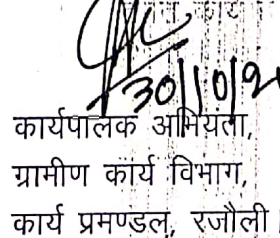 30/10/2
कार्यपालक अभियंता,
ग्रामीण कार्य विभाग,
कार्य प्रमण्डल, रजौली